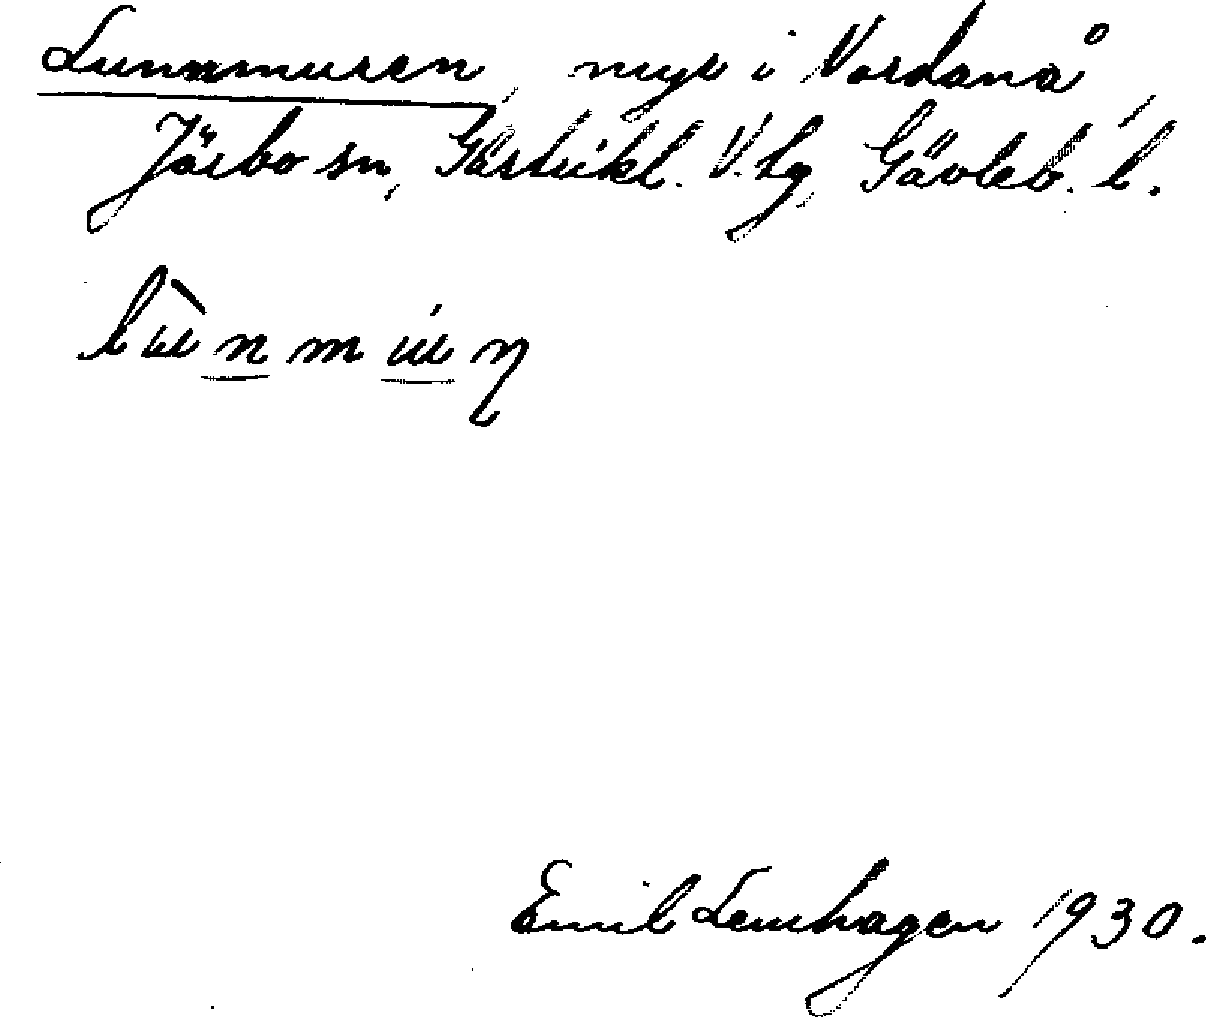 Lunnmuren, myr i Nordanå,
Järbo sn, Gästrikl. V. tg, Gävleb. l.
Emil Lenhagen 1930.